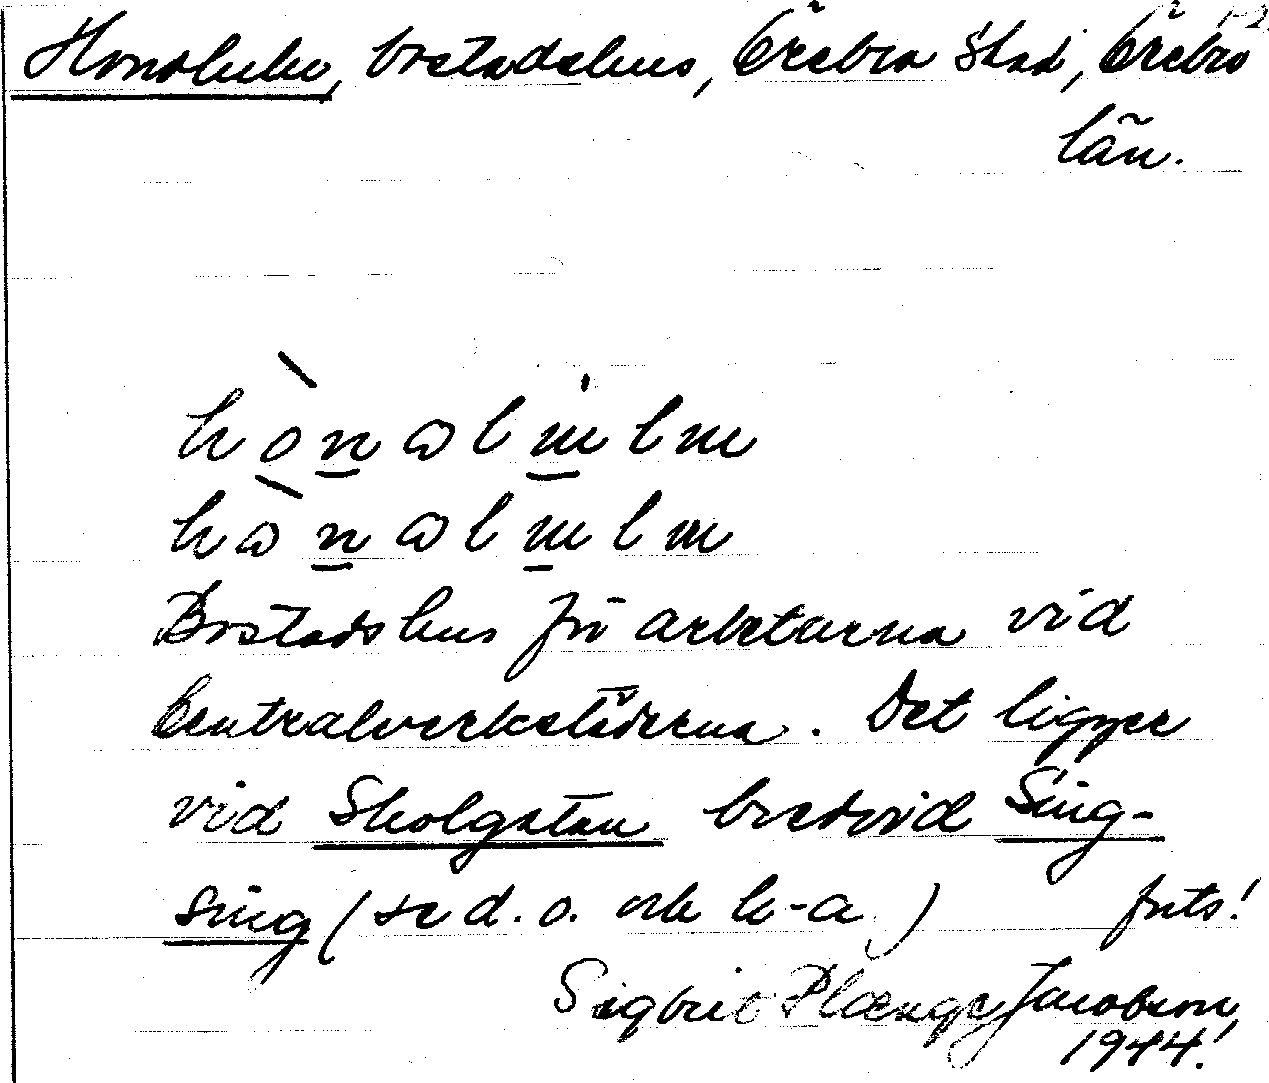 Honolulu, bostadshus, Örebro stad, Örebro
län.
hònalu̇lu
hànalulu
Bostadshus för arbetarna vid
Centralverkstäderna. Det ligger
vid Skolgatan bredvid Sing-
Sing (se d. o. och k-a.) forts!
Sigbrit Plænge Jacobson,
1944!